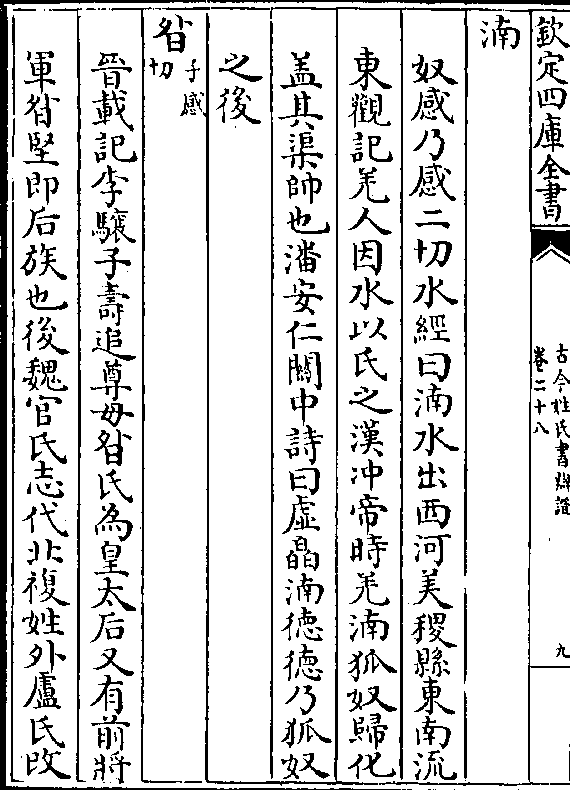 欽定四庫全書
古今姓氏書辯證
卷二十八
九
湳
奴感乃感二切水經曰湳水出西河美稷縣東南流
東觀記羌人因水以氏之漢冲帝時羌湳狐奴歸化
盖其渠帥也潘安仁關中詩曰虛皛湳德德乃狐奴
之後
昝子感切
晉載記李驤子壽追尊母昝氏為皇太后又有前將
軍昝堅即后族也後魏官氏志代北複姓外盧氏改